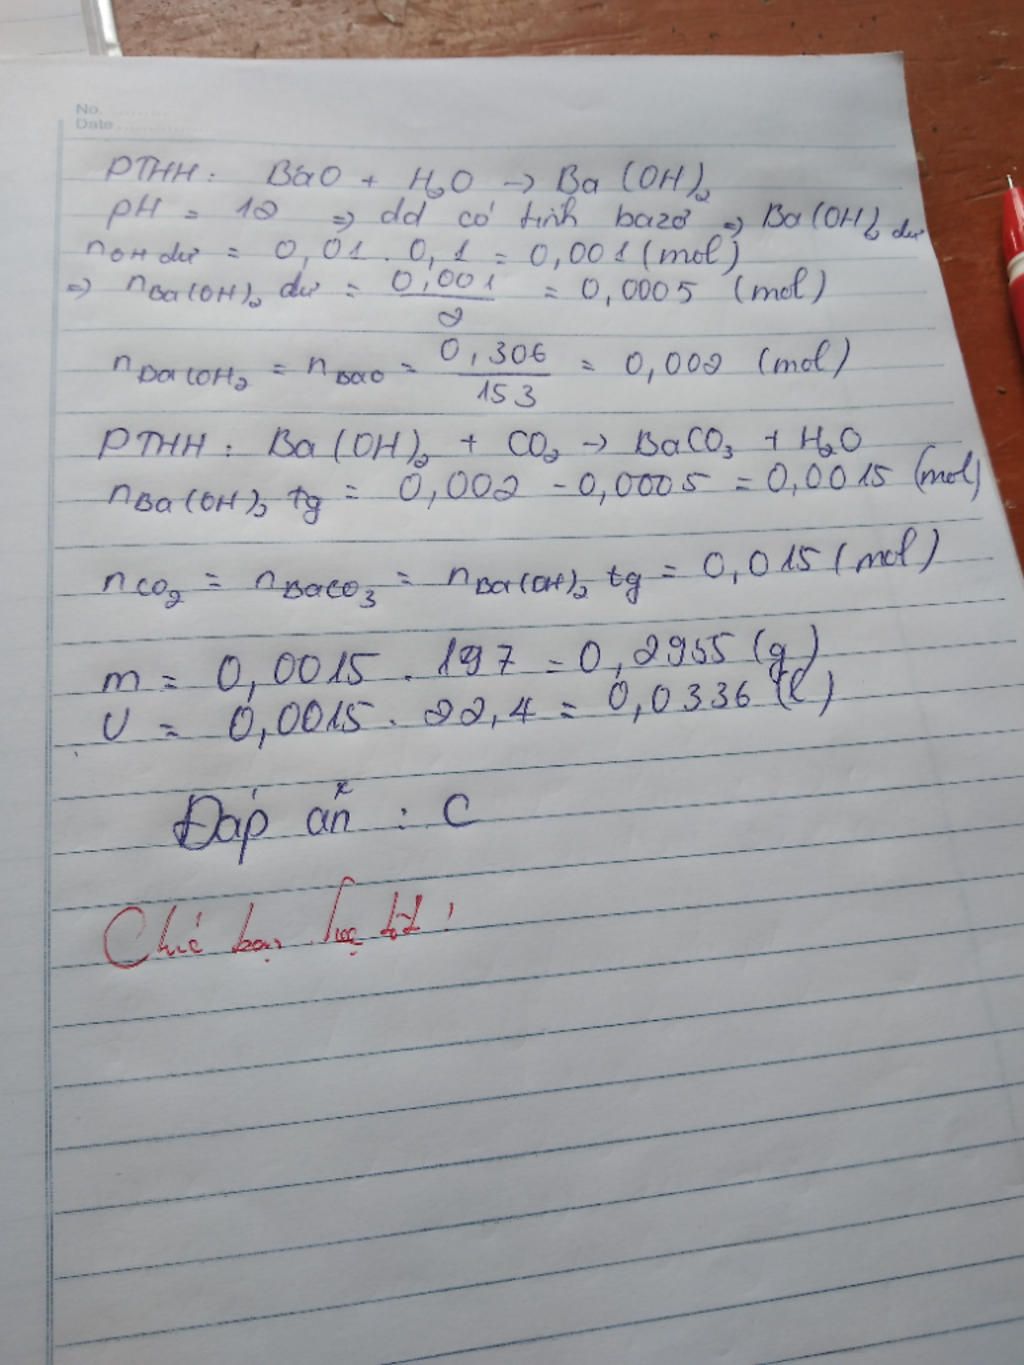 No.
Date
PTHH: BaO + H₂O → Ba(OH)₂
pH = 12 => dd có tính bazơ => Ba(OH)₂ dư
nOH dư = 0,01 . 0,1 = 0,001 (mol)
=> nBa(OH)₂ dư = 0,001/2 = 0,0005 (mol)
nBa(OH)₂ = nBaO = 0,306/153 = 0,002 (mol)
PTHH: Ba(OH)₂ + CO₂ → BaCO₃ + H₂O
nBa(OH)₂ tg = 0,002 - 0,0005 = 0,0015 (mol)
nCO₂ = nBaCO₃ = nBa(OH)₂ tg = 0,015 (mol)
m = 0,0015 . 197 = 0,2955 (g)
V = 0,0015 . 22,4 = 0,0336 (l)
Đáp án : C
Chúc bạn học tốt !